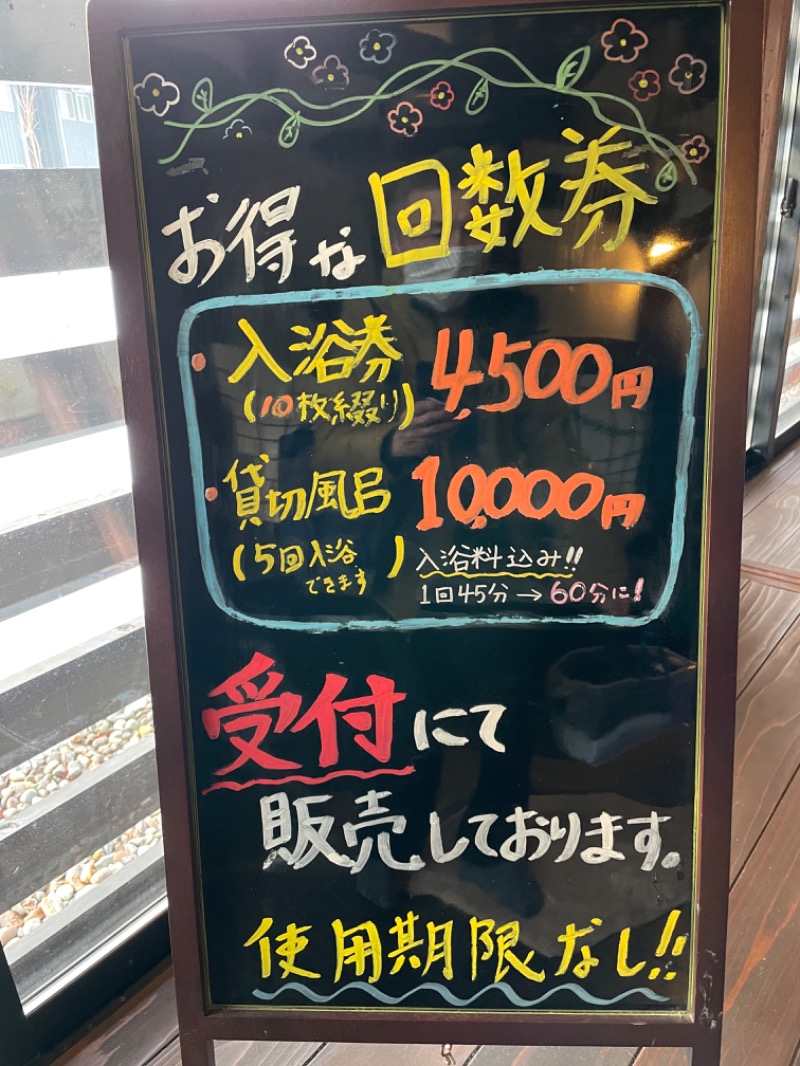 お得な回数券
入浴券 4,500円
(10枚綴り)
貸切風呂 10,000円
(5回入浴できます) 入浴料込み!!
1回45分→60分に!
受付にて
販売しております。
使用期限なし!!